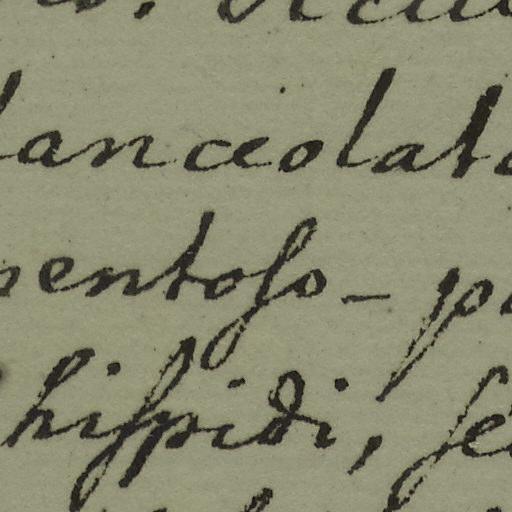 lanceolat
entoſo-p
hiſpidi, ſe